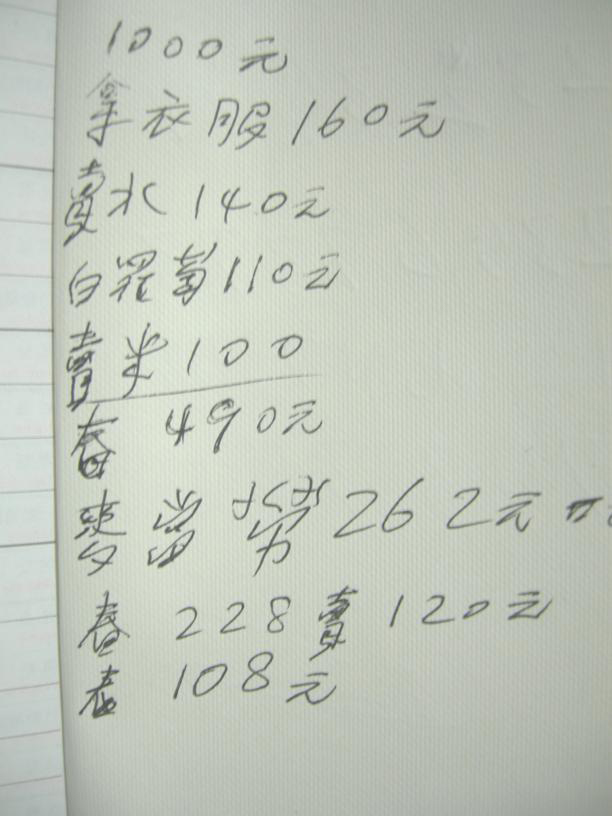 1000元
拿衣服160元
賣水140元
白羅蔔110元
賣米100
春490元
麥當勞262元
春228賣120元
春108元